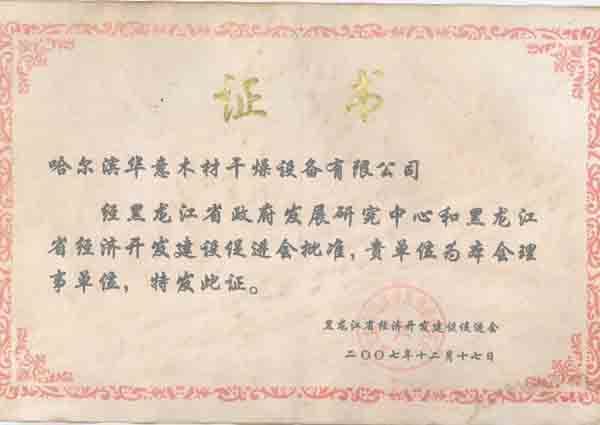 证 书
哈尔滨华意木材干燥设备有限公司
经黑龙江省政府发展研究中心和黑龙江
省经济开发建设促进会批准，贵单位为本会理
事单位，特发此证。
黑龙江省经济开发建设促进会
二〇〇七年十二月十七日